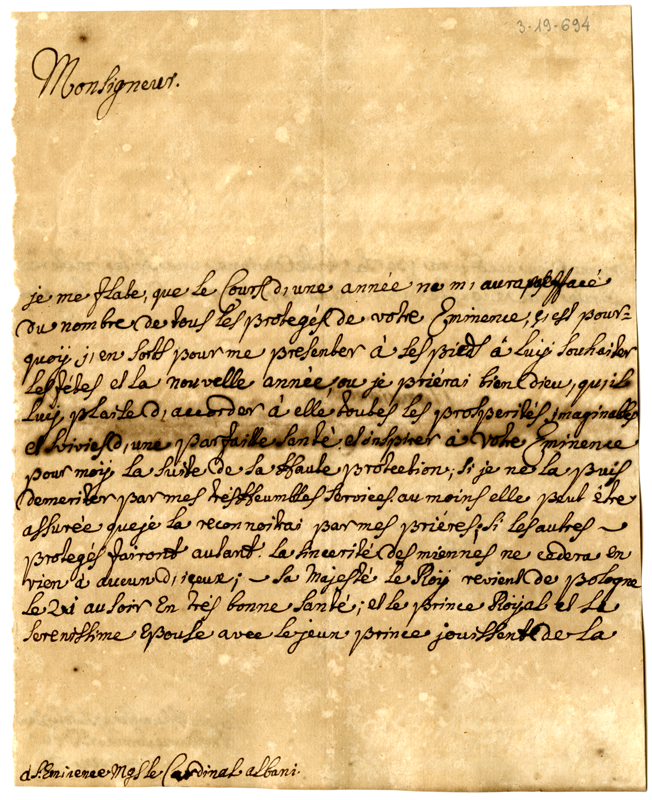 3-19-694
Monsigneur.
je me flate, que le Cours d,une année ne m,aura pas effacé
du nombre de tous les protegés de votre Eminence, c,est pour=
quoij j,en sorts pour me presenter à ses pieds à Luij souhaiter
les fétes et la nouvelle année, ou je priérai bien dieu, qu,il
Luij plaise d,accorder à elle toutes les prosperités imaginables
et suivies d,une parfaitte santé. et inspirer à votre Eminence
pour moij la suite de sa Haute protection, si je ne la puis
demeriter par mes trés Heumbles services. au moins elle peut étre
assurée que je la reconnoitrai par mes priéres; si les autres ~
protegés fairront autant. la sincerité des miennes ne cedera en
rien à aucun d,iceux; ~ sa Majesté le Roij revient de pologne
le 21 au soir En trés bonne santé; et le prince Roijal et la
serenissime Epouse avec le jeun prince jouissent de la
à s. Eminence Mgs le Cardinal albani.